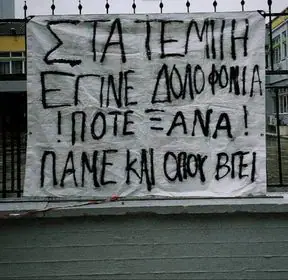 ΣΤΑ ΤΕΜΠΗ
ΕΓΙΝΕ ΔΟΛΟΦΟΝΙΑ
! ΠΟΤΕ ΞΑΝΑ !
ΠΑΜΕ ΚΑΙ ΟΠΟΥ ΒΓΕΙ